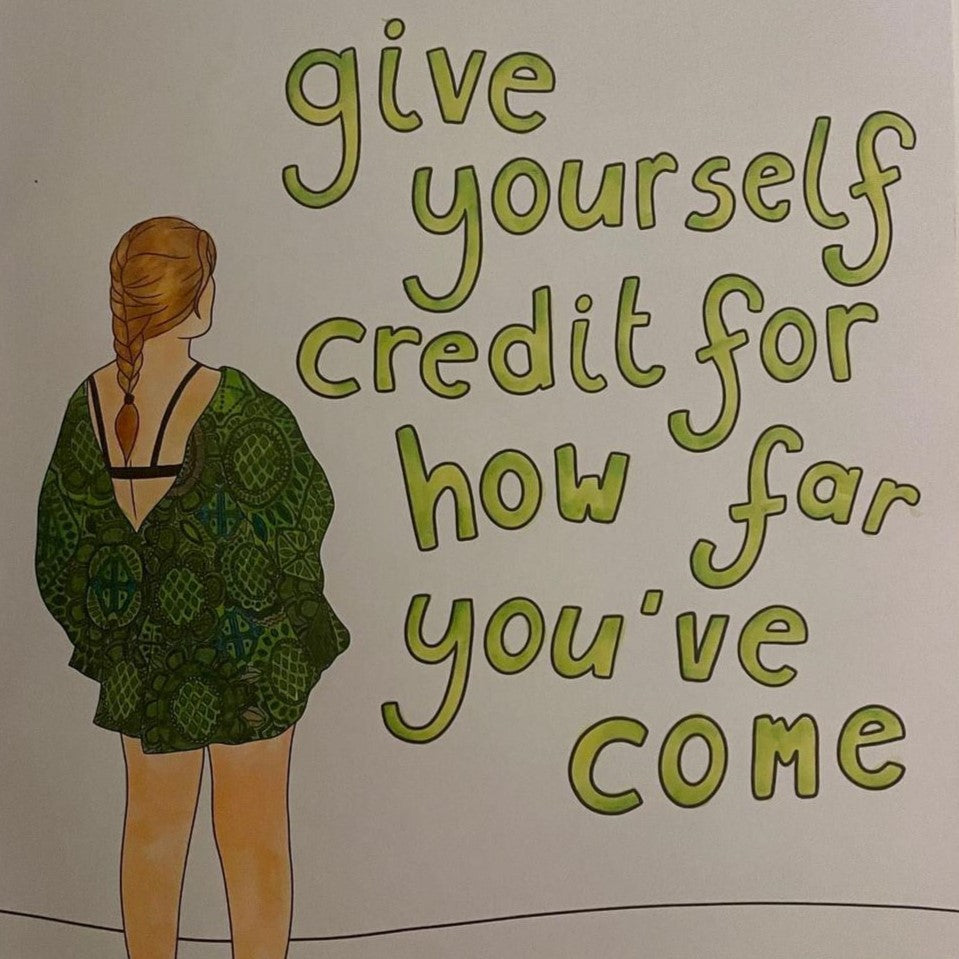 give
yourself
credit for
how far
you've
come